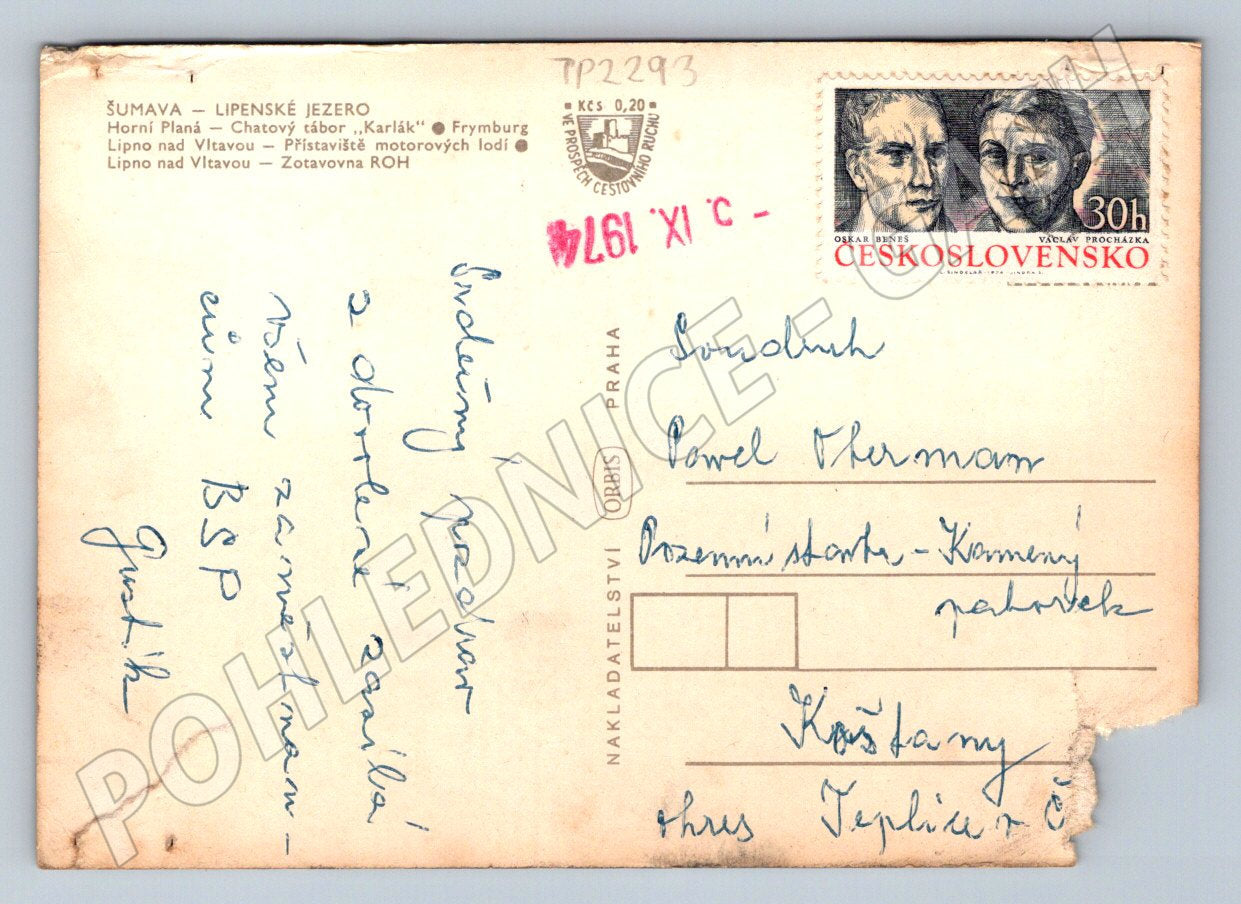 TP2293
ŠUMAVA — LIPENSKÉ JEZERO
Horní Planá — Chatový tábor „Karlák" ● Frymburg
Lipno nad Vltavou — Přístaviště motorových lodí ●
Lipno nad Vltavou — Zotavovna ROH
KČS 0,20
VE PROSPĚCH CESTOVNÍHO RUCHU
IX. 1974
OSKAR BENEŠ VÁCLAV PROCHÁZKA
30h
ČESKOSLOVENSKO
Srdečný pozdrav
z dovolené zasílá
všem zaměstnan-
cům BSP
Gustík
NAKLADATELSTVÍ ORBIS PRAHA
Soudruh
Pavel Oberman
Pozemní stavby - Kamený
pahorek
Košťany
okres Teplice v Č
POHLEDNICE -